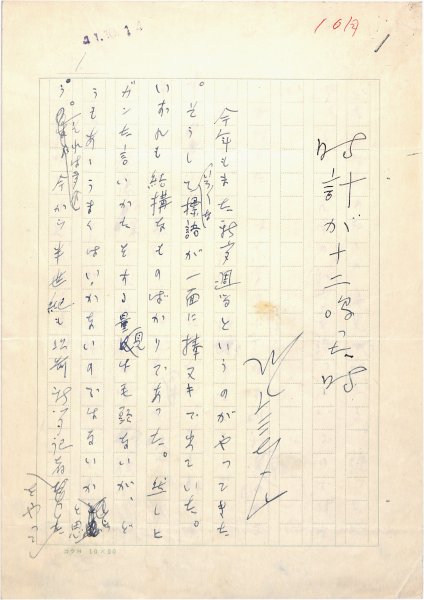 10月
時計が十二鳴った時
今年もまた新聞週間というのがやってきた
。そうしていろいろな標語が一面に棒ヌキで出ていた。
いずれも結構なものばかりであった。然しヒ
ガンだ言いかたをする量見は毛頭ないが、ど
うもあゝうまくはいかないのではないかと思
う。今から半世紀も以前新聞記者をやって
コクヨ 10×20